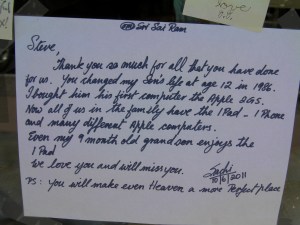 Sri Sai Ram
Steve,
Thank you so much for all that you have done
for us. You changed my Son's life at age 12 in 1986.
I bought him his first computer the Apple 2GS.
Now all of us in the family have the IPad - IPhone
and many different Apple computers.
Even my 9 month old grandson enjoys the
IPad
We love you and will miss you.
10/6/2011
PS: You will make even Heaven a more Perfect place